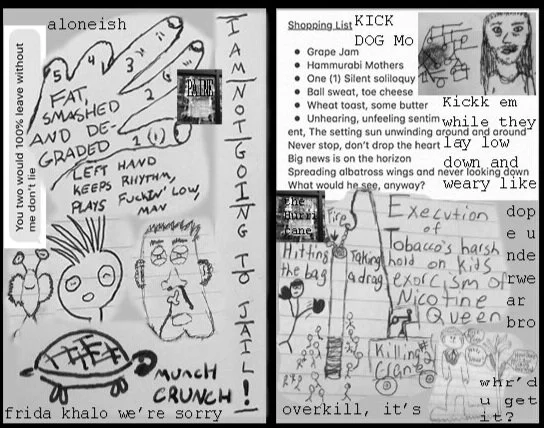 aloneish
You two would 100% leave without
me don't lie
5
4
3
2
1 (1)
FAT,
SMASHED
AND DE-
GRADED
LEFT HAND
KEEPS RHYTHM,
PLAYS FUCKIN' LOW,
MAN
I AM NOT GOING TO JAIL!
MUNCH
CRUNCH
frida khalo we're sorry
Shopping List
KICK
DOG Mo
Grape Jam
Hammurabi Mothers
One (1) Silent soliloquy
Ball sweat, toe cheese
Wheat toast, some butter
Unhearing, unfeeling sentim
ent, The setting sun unwinding around and around
Never stop, don't drop the heart
Big news is on the horizon
Spreading albatross wings and never looking down
What would he see, anyway?
Kickk em
while they
lay low
down and
weary like
the
Hurri
cane
Fire
Hitting
the bag
Taking
a drag
Execution
of
Tobacco's harsh
hold on kids
exorcism of
Nicotine
Queen
Killing #2
Giant
dop
e u
nde
rwe
ar
bro
overkill, it's
whr'd
u get
it?